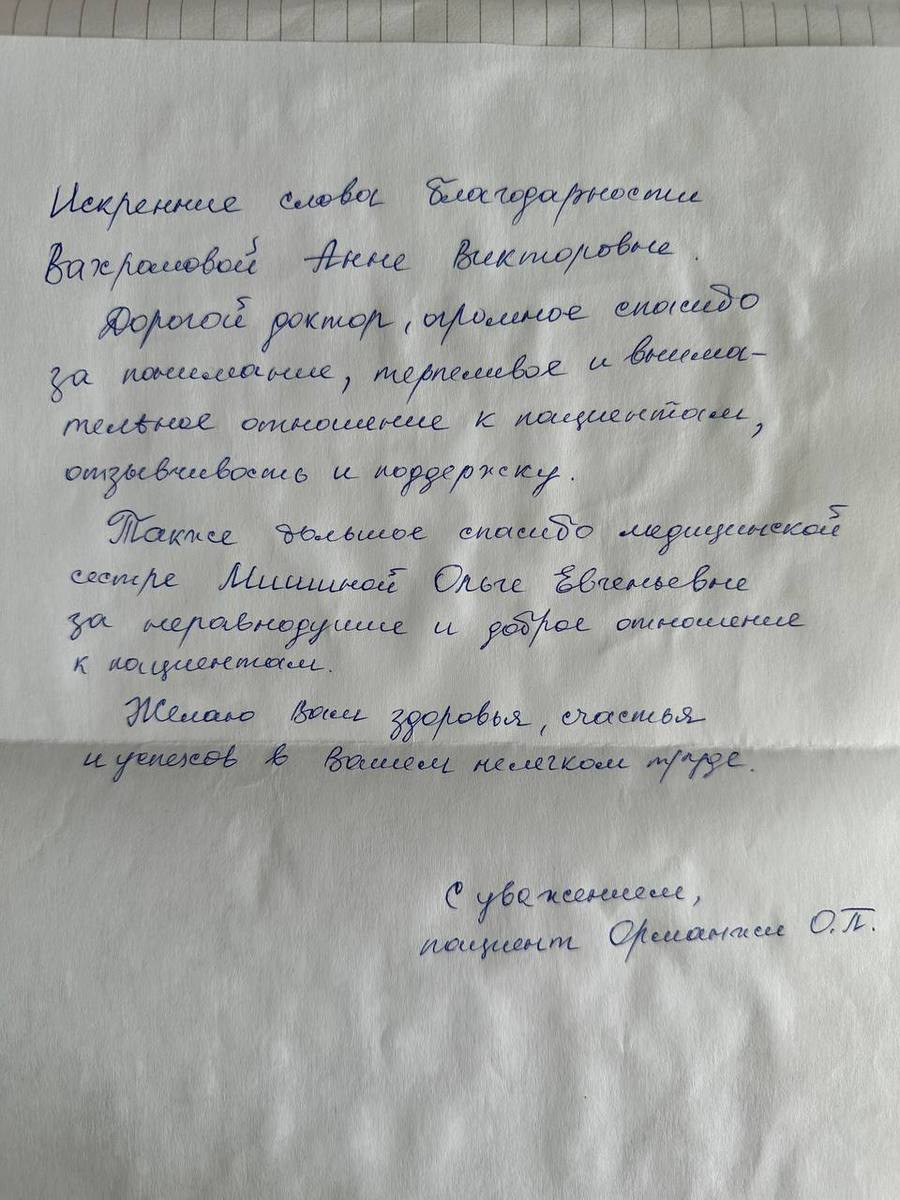 Искренние слова благодарности
Вахромовой Анне Викторовне.
Дорогой доктор, огромное спасибо
за понимание, терпеливое и внима-
тельное отношение к пациентам,
отзывчивость и поддержку.
Также большое спасибо медицинской
сестре Мишиной Ольге Евгеньевне
за неравнодушие и доброе отношение
к пациентам.
Желаю Вам здоровья, счастья
и успехов в Вашем нелегком труде.
С уважением,
пациент О.П.